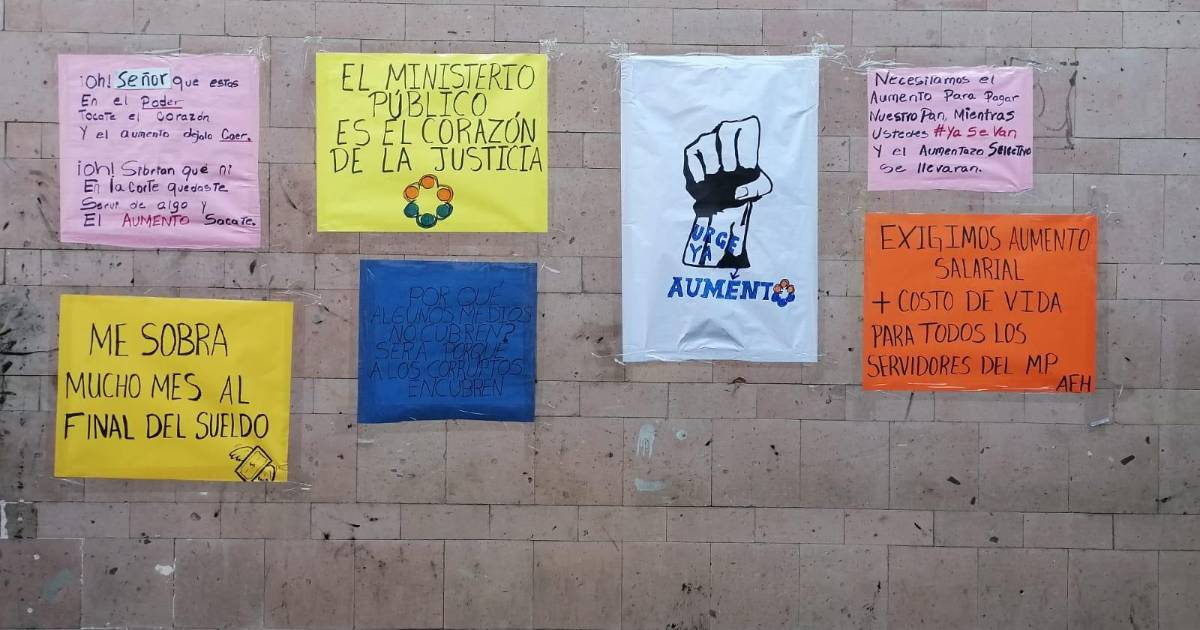 ¡Oh! Señor que estas
En el Poder
Tocate el Corazón
Y el aumento dejalo Caer.
¡Oh! Sibrian que ni
En la Corte quedaste
Servi de algo y
El AUMENTO Sacate.
EL MINISTERIO
PÚBLICO
ES EL CORAZÓN
DE LA JUSTICIA
URGE
YA
AUMENTO
Necesitamos el
Aumento Para Pagar
Nuestro Pan, Mientras
Ustedes #Ya Se Van
Y el Aumentazo Selectivo
Se llevaran.
ME SOBRA
MUCHO MES AL
FINAL DEL SUELDO
POR QUÉ
ALGUNOS MEDIOS
NO CUBREN?
SERA PORQUE
A LOS CORRUPTOS
ENCUBREN
EXIGIMOS AUMENTO
SALARIAL
+ COSTO DE VIDA
PARA TODOS LOS
SERVIDORES DEL MP
AEH